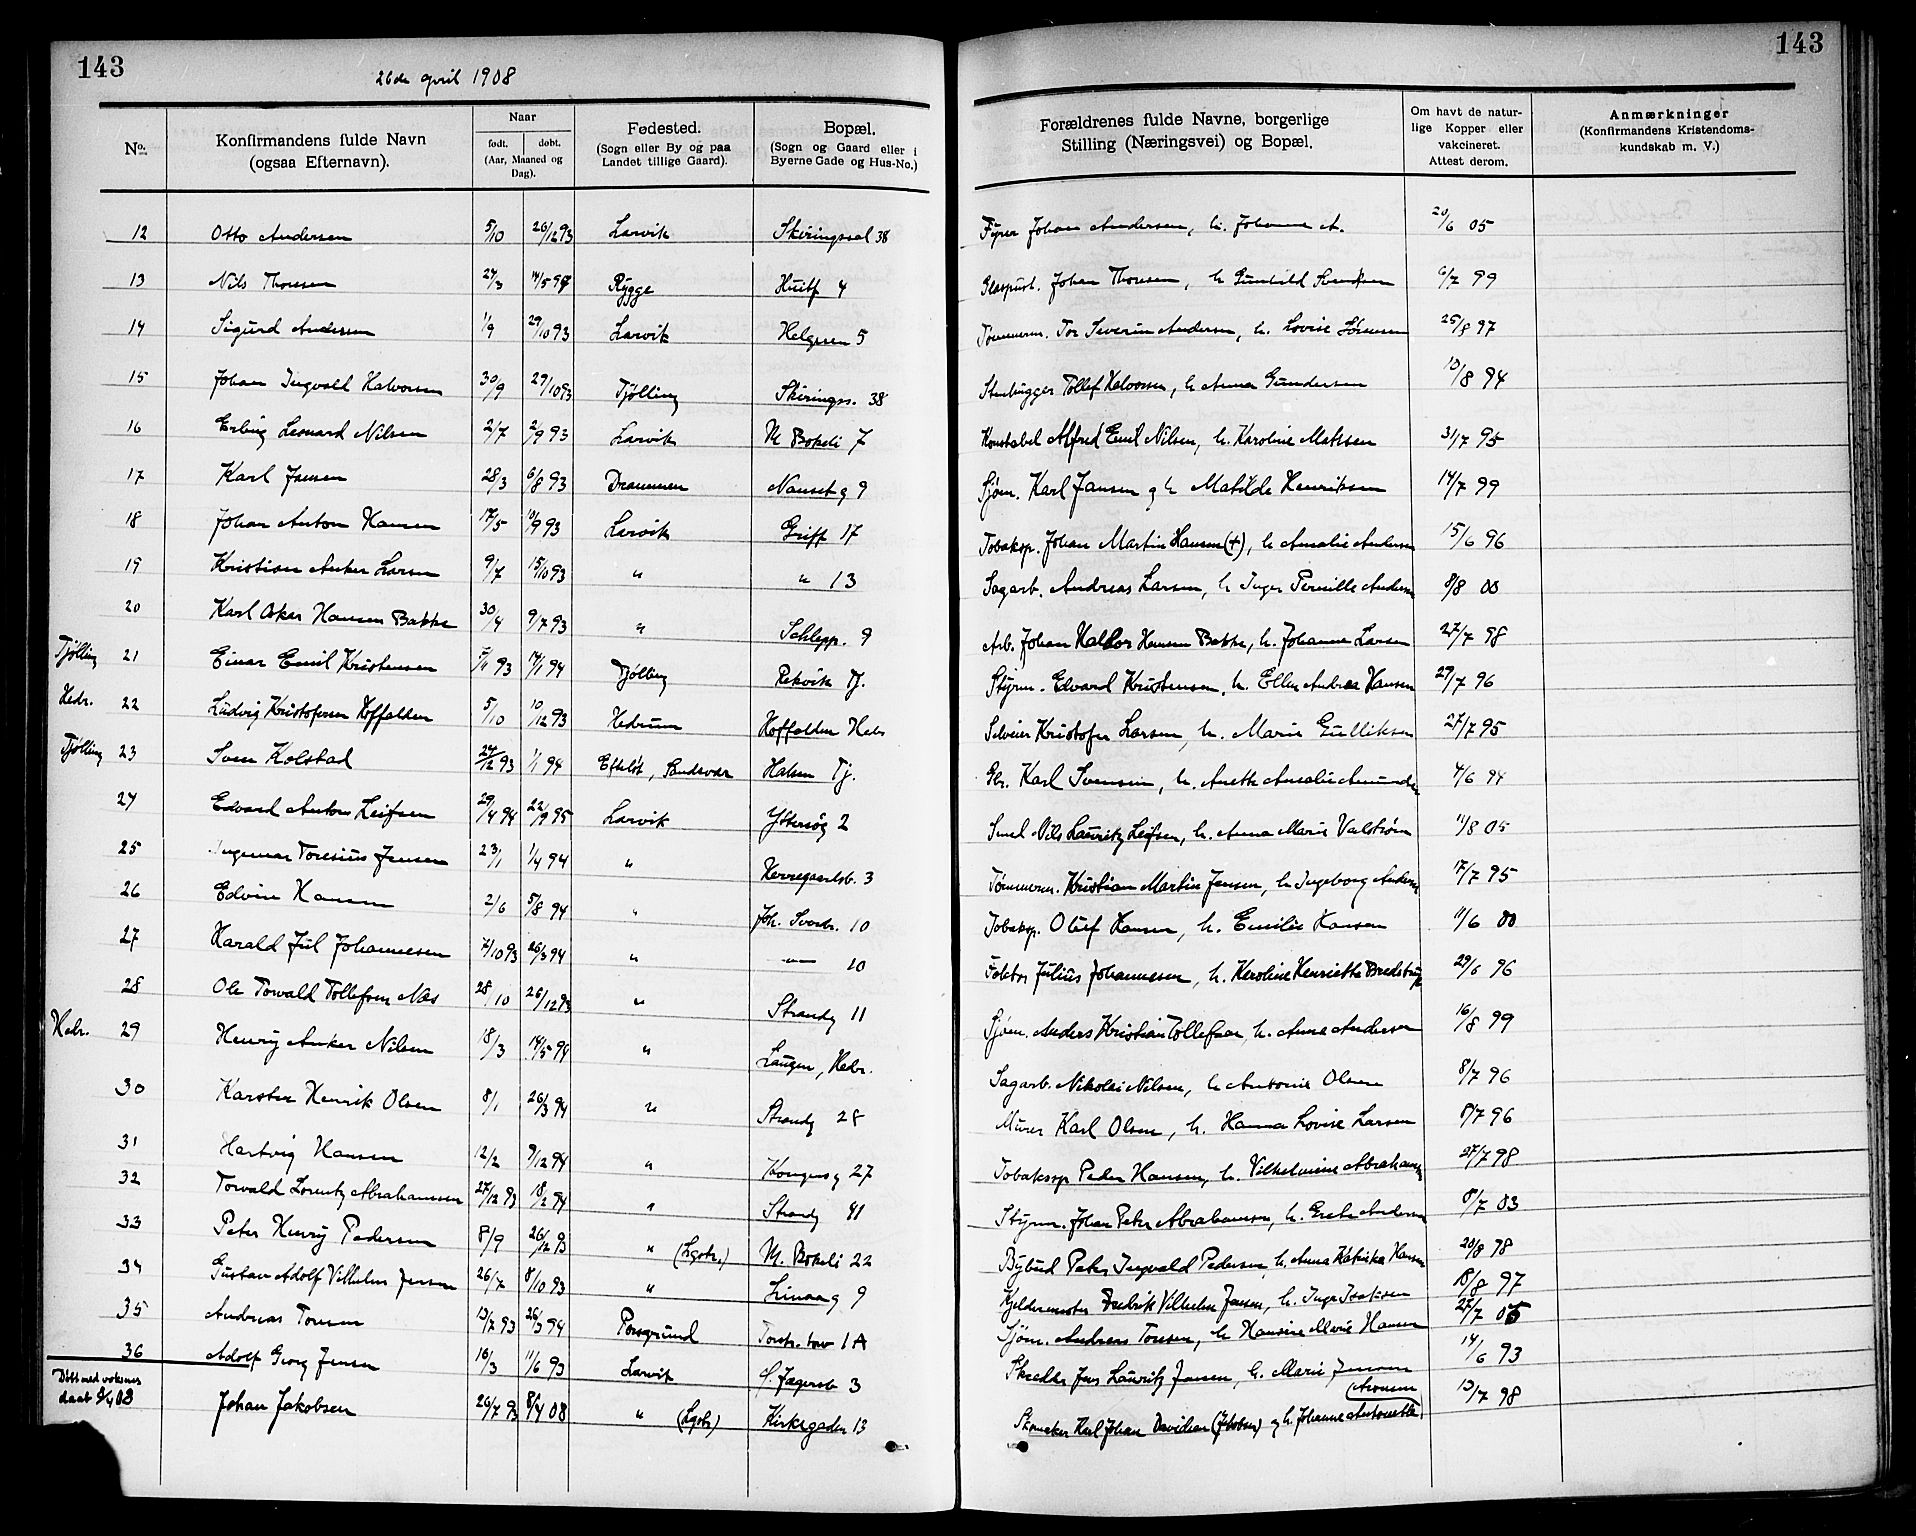 143
26de april 1908
143
No.
Konfirmandens fulde Navn
(ogsaa Efternavn).
Naar
født.
døbt.
(Aar, Maaned og
Dag).
Fødested.
(Sogn eller By og paa
Landet tillige Gaard).
Bopæl.
(Sogn og Gaard eller i
Byerne Gade og Hus-No.)
Forældrenes fulde Navne, borgerlige
Stilling (Næringsvei) og Bopæl.
Om havt de natur-
lige Kopper eller
vakcineret.
Attest derom.
Anmærkninger
(Konfirmandens Kristendoms-
kundskab m. V.)
12 Otto Andersen 5/10 26/12 93 Larvik Skiringssal 38 Fyrer Johan Andersen, h. Johanne A. 20/6 05
13 Nils Thoresen 24/3 14/5 94 Rygge Huitf 4 Glaspust. Johan Thoresen, h Gunhild 6/7 99
14 Sigurd Andersen 1/9 29/10 93 Larvik Helgesen 5 Tømmerm. Tor Severin Andersen, h. Lovise Sørensen 25/8 97
15 Johan Ingvald Halvorsen 30/9 29/10 93 Tjølling Skiringss. 38 Stenhugger Tollef Halvorsen, h Anna Gundersen 10/8 94
16 Erling Leonard Nilsen 2/7 2/9 93 Larvik M Bokeli 7 Konstabel Alfred Emil Nilsen, h. Karoline Matssen 31/7 95
17 Karl Jansen 28/3 6/8 93 Drammen Nanset g 9 Sjøm. Karl Jansen g h Matilde Henriksen 14/7 99
18 Johan Anton Hansen 17/5 10/9 93 Larvik Griff 17 Tobaksp. Johan Martin Hansen (+), h Amalie Andersen 15/6 96
19 Kristian Anker Larsen 9/7 15/10 93 " " 13 Sagarb. Andreas Larsen, h Inger Pernille Andersen 8/8 00
20 Karl Oskar Hansen Bakke 30/4 9/7 93 " Schlepp. 9 Arb. Johan Haldor Hansen Bakke, h. Johanne Larsen 27/7 98
Tjølling 21 Einar Emil Kristensen 5/11 93 14/1 94 Tjølling Rekvik Tj. Styrm. Edvard Kristensen, h. Ellen Andrea Hansen 29/7 96
Hedr. 22 Ludvig Kristofersen Hoffalden 5/10 10/12 93 Hedrum Hoffalden Hedr Selveier Kristofer Larsen, h. Marie Gulliksen 27/7 95
Tjølling 23 Sven Kolstad 24/12 93 1/1 94 Efteløt, Sandsvær Halsen Tj. Gbr. Karl Svensen, h. Anette Amalie Amundsen 4/6 94
24 Edvard Anton Leifsen 29/4 94 22/9 95 Larvik Yttersøg 2 Smed Nils Lauritz Leifsen, h. Anna Marie Valstrøm 11/8 05
25 Ingemar Toresius Jensen 23/1 1/4 94 " Herregaardsb. 3 Tømmerm. Kristian Martin Jensen, h Ingeborg Andersen 17/7 95
26 Edvin Hansen 2/6 5/8 94 " Joh. Svends. 10 Tobaksp. Oluf Hansen, h. Emilie Hansen 11/6 00
27 Harald Jul Johannesen 7/10 93 26/3 94 " —"— 20 Faktor Julius Johannesen, h. Karoline Henriette Bredstrup 29/6 96
28 Ole Torvald Tollefsen Næs 28/10 26/12 93 " Strandg 11 Sjøm. Anders Kristian Tollefsen h. Anne Andersen 16/8 99
Hedr. 29 Henry Anker Nilsen 18/3 14/5 94 " Laugen, Hedr. Sagarb. Nikolai Nilsen, h Antonie Olsen 8/7 96
30 Karsten Henrik Olsen 8/1 26/3 94 " Strandg 28 Murer Karl Olsen, h. Hanna Lovise Larsen 8/7 96
31 Hartvig Hansen 12/2 9/12 94 " Kongens g 27 Tobakssp Peder Hansen, h. Vilhelmine Abrahamsen 27/7 98
32 Torvald Lorentz Abrahamsen 27/12 93 18/2 94 " Strandg 41 Styrm. Johan Peter Abrahamsen, h. Grete Andersen 8/7 03
33 Peter Henry Pedersen 8/9 26/12 93 " (Lgstr.) M. Bokeli 22 Bybud Peter Ingvald Pedersen, h. Anna Katinka Hansen 20/8 98
34 Gustav Adolf Vilhelm Jensen 26/7 8/10 93 " Linaag 9 Kjeldermester Fredrik Vilhelm Jensen, h. Inga Isaksen 18/8 97
35 Andreas Toresen 13/7 93 26/3 94 Porsgrund Torstr. 1A Sjøm. Andreas Toresen, h Hansine Marie Hansen 27/7 05
36 Adolf Georg Jensen 16/3 11/6 93 Larvik S. Jegersb 3 Skrædder Jens Lauritz Jensen, h. Marie Jensen 14/6 93
Døbt ved voksnes
daab 8/4 08 Johan Jakobsen 26/7 93 8/4 08 " (Lgstr) Kirkegaden 13 Skomaker Karl Johan Davidsen (Jakobsen) g h. Johanne Antonette (Aronsen 13/7 98